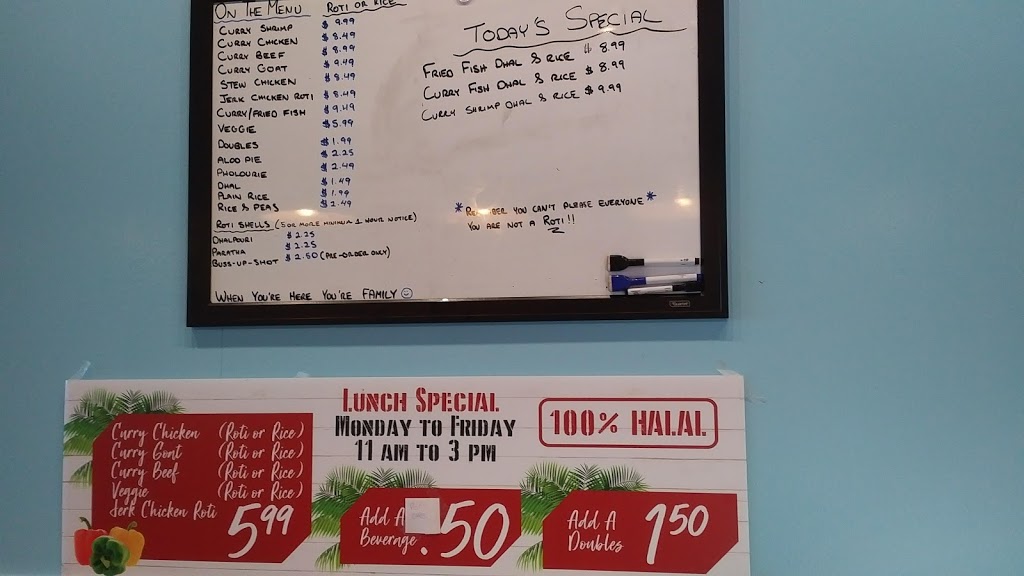 ON THE MENU ROTI OR RICE
CURRY SHRIMP $ 9.99
CURRY CHICKEN $ 8.49
CURRY BEEF $ 8.99
CURRY GOAT $ 9.49
STEW CHICKEN $ 8.49
JERK CHICKEN ROTI $ 8.49
CURRY/FRIED FISH $ 9.49
VEGGIE $ 5.99
DOUBLES $ 1.99
ALOO PIE $ 2.25
PHOLOURIE $ 2.49
DHAL $ 1.49
PLAIN RICE $ 1.99
RICE & PEAS $ 2.49
ROTI SHELLS (5 OR MORE MINIMUM 1 HOUR NOTICE)
DHALPOURI $ 2.25
PARATHA $ 2.25
BUSS-UP-SHOT $ 2.50 (PRE-ORDER ONLY)
WHEN YOU'RE HERE YOU'RE FAMILY ☺
TODAY'S SPECIAL
FRIED FISH DHAL & RICE $ 8.99
CURRY FISH DHAL & RICE $ 8.99
CURRY SHRIMP DHAL & RICE $ 9.99
* REMEMBER YOU CAN'T PLEASE EVERYONE *
YOU ARE NOT A ROTI!!
LUNCH SPECIAL
MONDAY TO FRIDAY
11 AM TO 3 PM
100% HALAL
Curry Chicken (Roti or Rice)
Curry Goat (Roti or Rice)
Curry Beef (Roti or Rice)
Veggie (Roti or Rice)
Jerk Chicken Roti
5.99
Add A
Beverage .50
Add A
Doubles 1.50